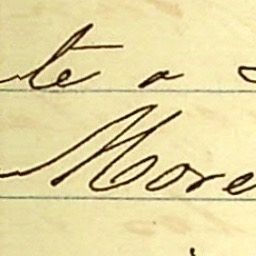 te a
More